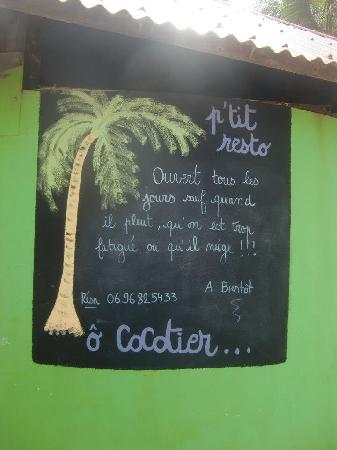 p'tit
resto
Ouvert tous les
jours sauf quand
il pleut, qu'on est trop
fatigué ou qu'il neige !!!
A Bientôt
Résa 0696825433
ô CoCotier...